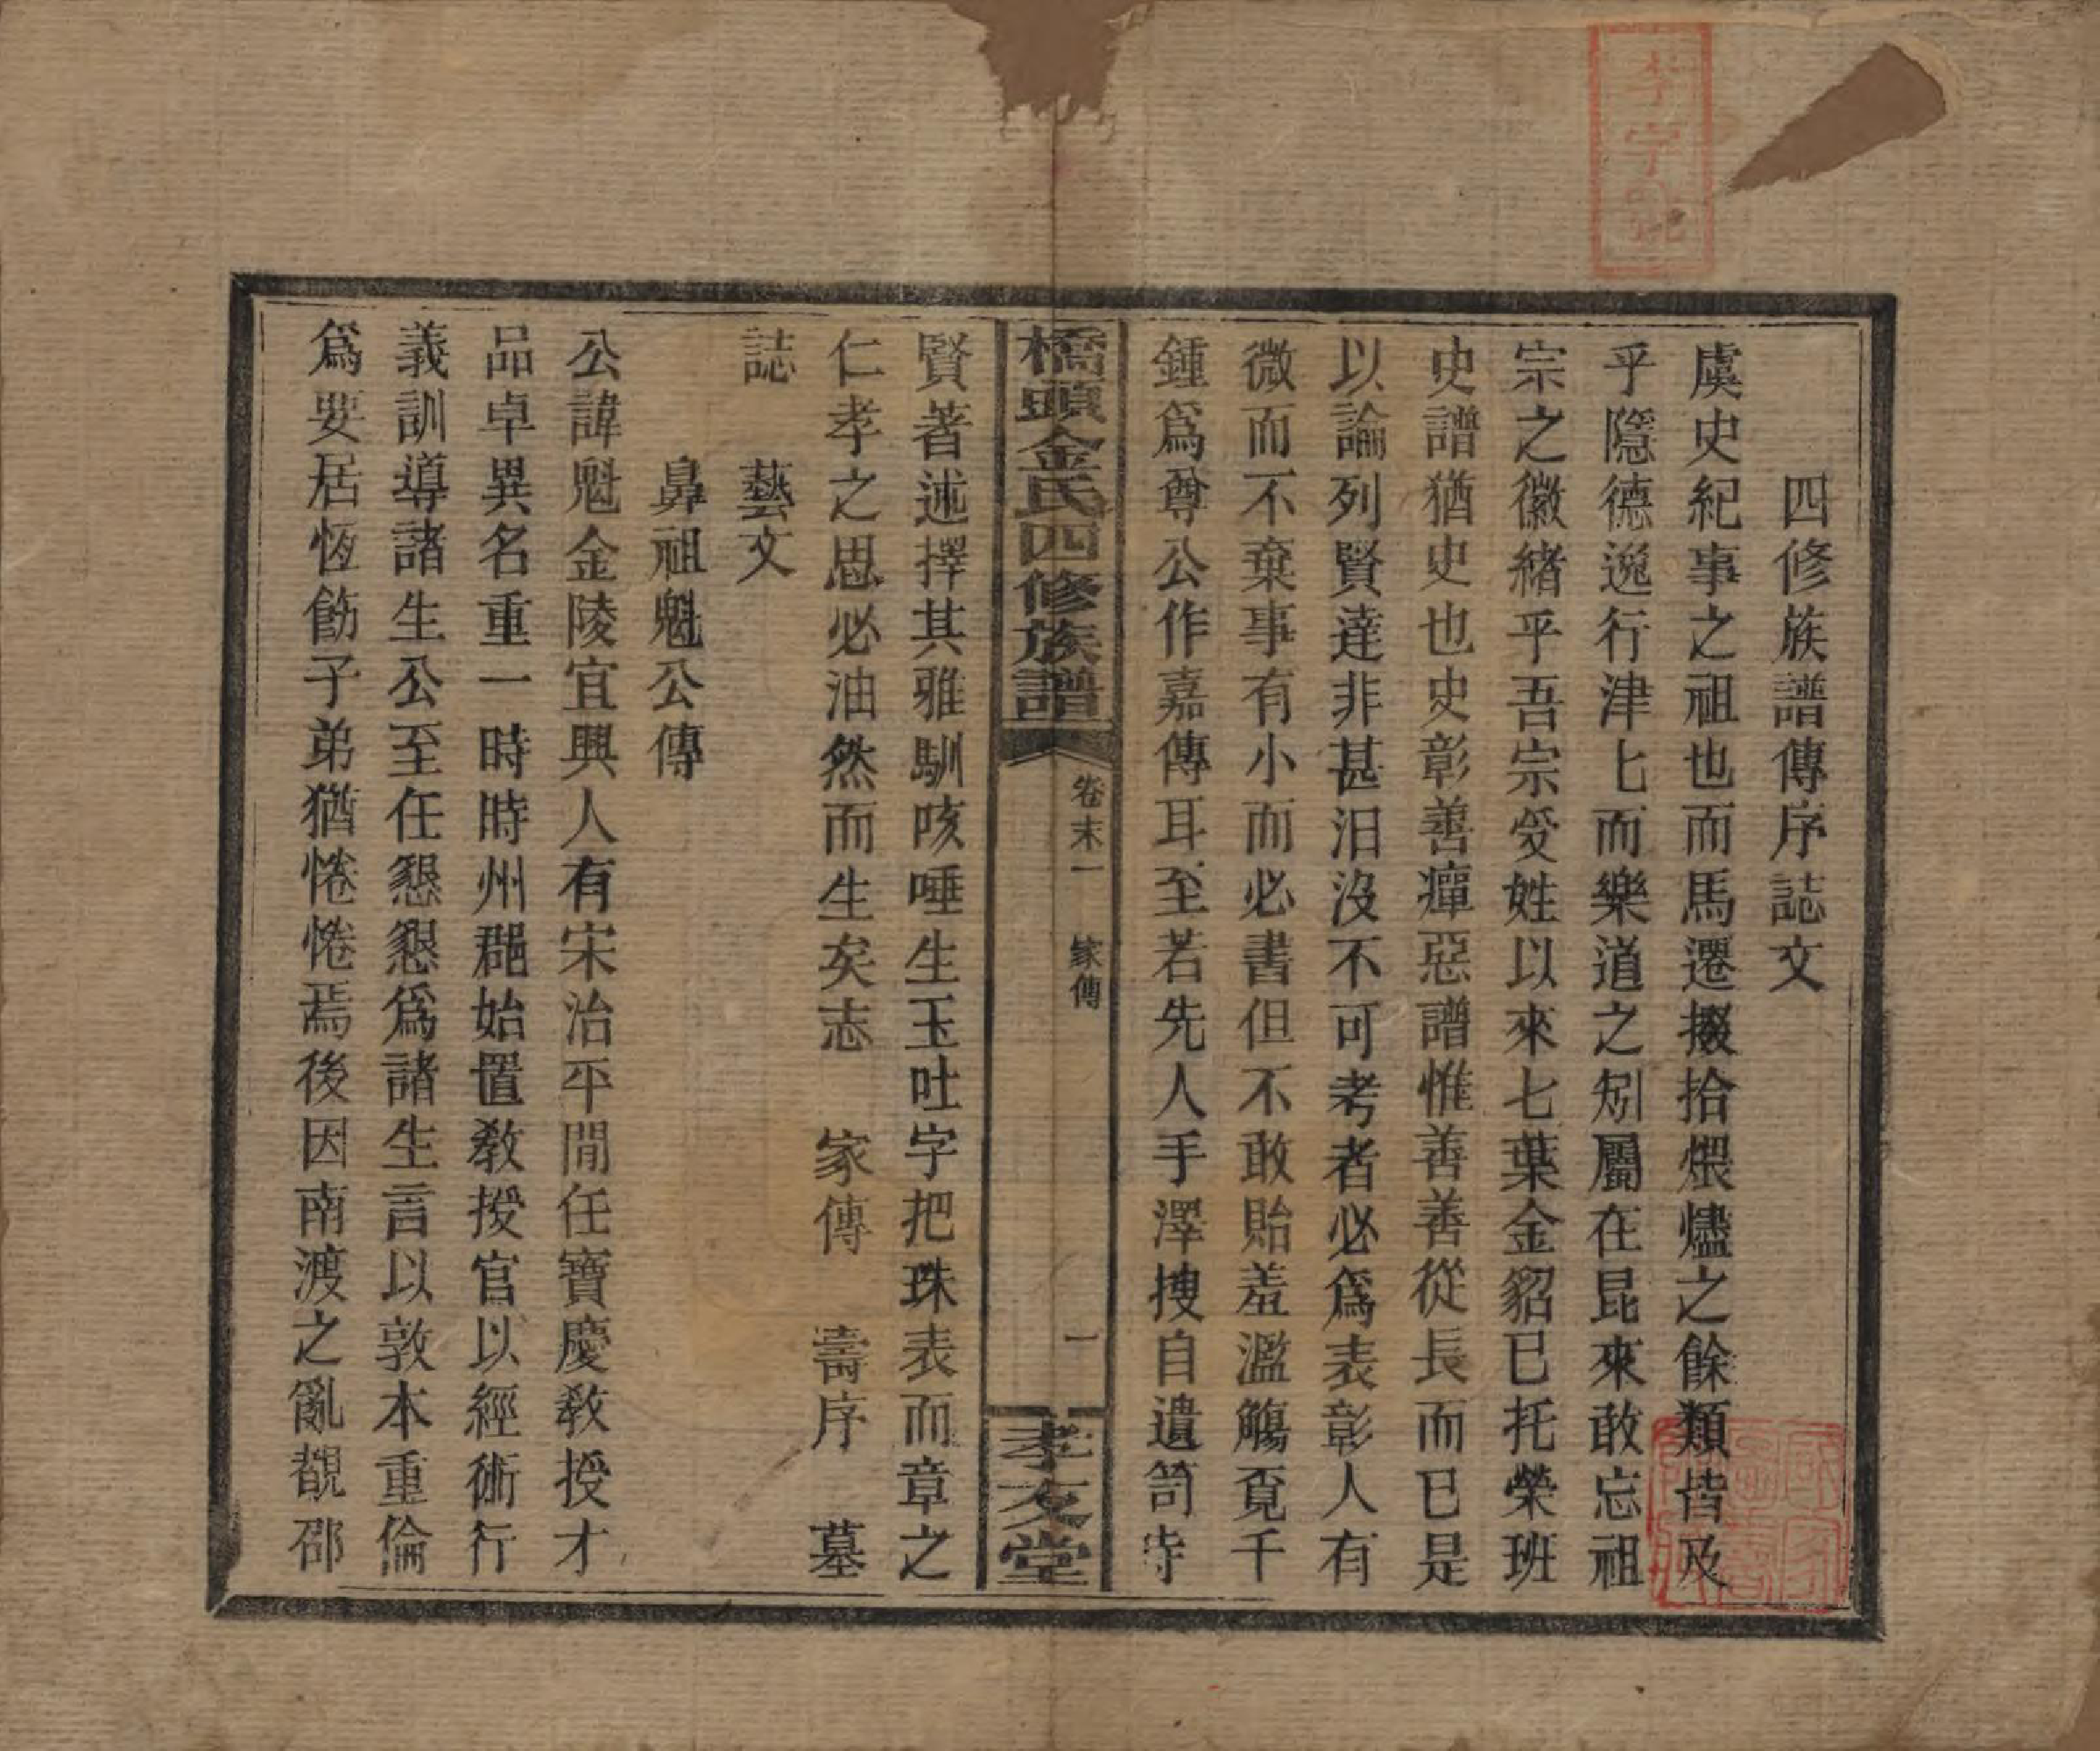 四修族譜傳序誌文
虞史紀事之祖也而馬遷掇拾煨燼之餘類皆及
乎隱德逸行津七而樂道之矧屬在昆來敢忘祖
宗之徽緒乎吾宗受姓以來七葉金貂已托榮班
史譜猶史也史彰善癉惡譜惟善善從長而已是
以論列賢達非甚汨沒不可考者必爲表彰人有
微而不棄事有小而必書但不敢貽羞濫觴覔千
鍾爲尊公作嘉傳耳至若先人手澤搜自遺笥時
橋頭金氏四修族譜
卷末一 家傳 一
孝友堂
賢著述擇其雅馴咳唾生玉吐字把珠表而章之
仁孝之思必油然而生矣志 家傳 壽序 墓
誌 藝文
鼻祖魁公傳
公諱魁金陵宜興人有宋治平間任寶慶教授才
品卓異名重一時時州郡始置教授官以經術行
義訓導諸生公至任懇懇爲諸生言以敦本重倫
爲要居恆飭子弟猶惓惓焉後因南渡之亂覩邵